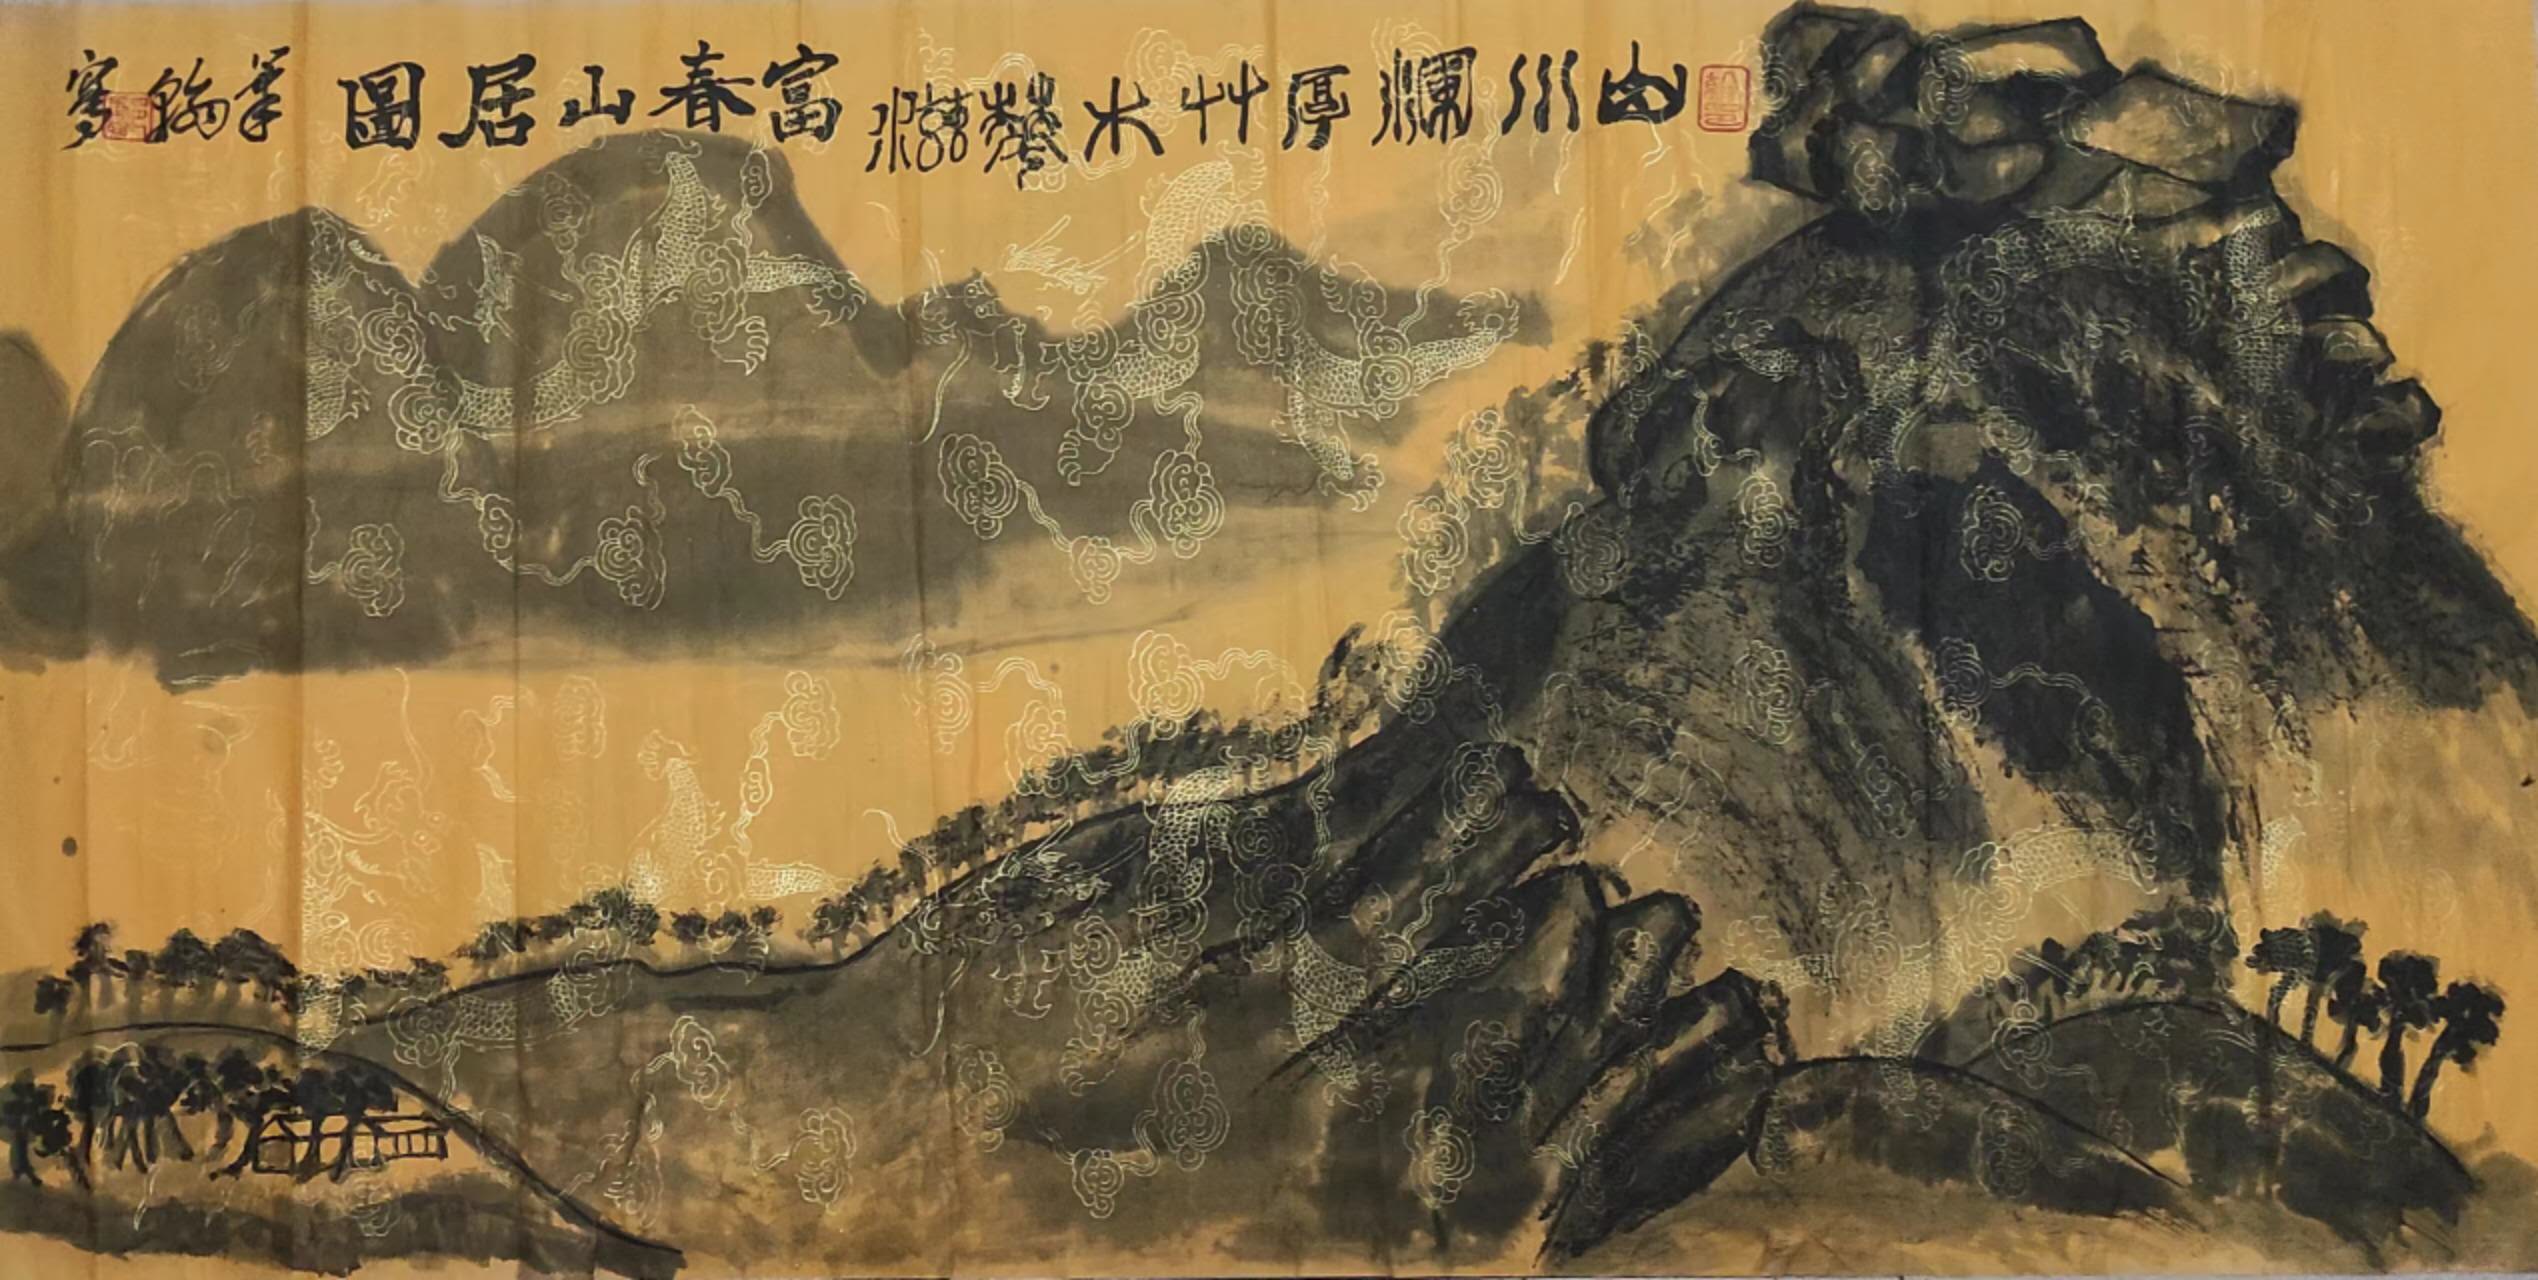 山川瀾厚艸木華滋富春山居圖